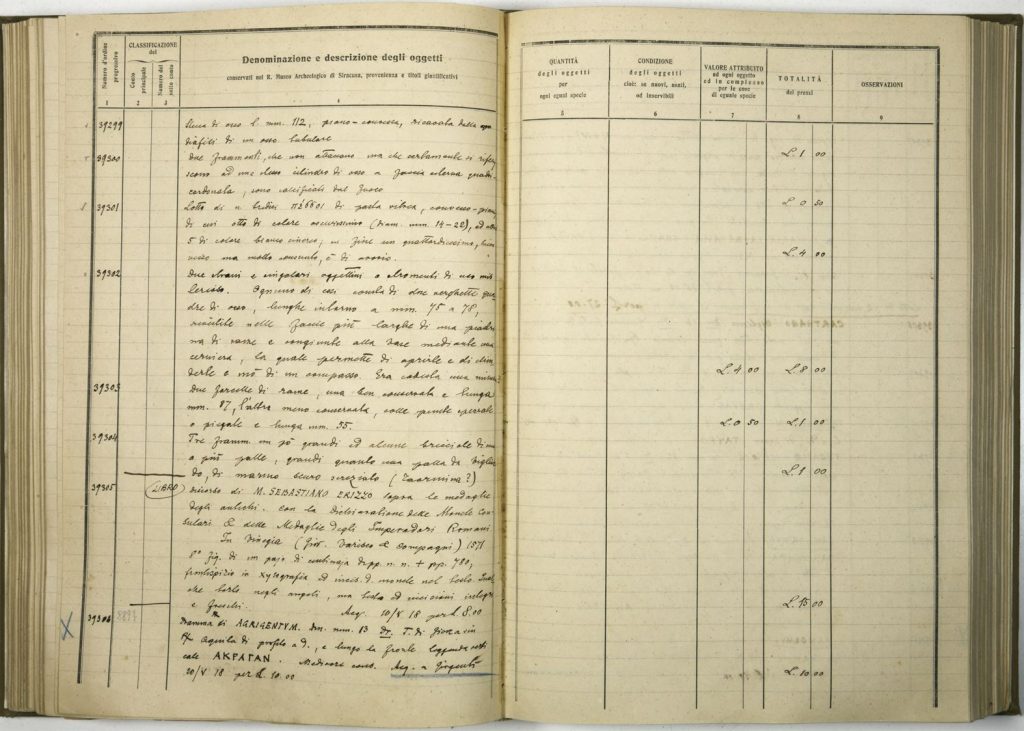 Numero d'ordine progressivo
CLASSIFICAZIONE del
Conto principale
Numero del sotto conto
Denominazione e descrizione degli oggetti
conservati nel R. Museo Archeologico di Siracusa, provenienza e titoli giustificativi
1 2 3 4
39299 di osso l. mm. 112, piano-convessa, ricavata dalla
diafisi di un osso tubulare
39300 Due frammenti, che non attaccano ma che certamente si
scono ad uno stesso cilindro di osso a faccia esterna
, sono calcificati dal fuoco
39301 Lotto di n. di pasta vitrea, convesso-piani
di cui otto di colore oscurissimo (diam. mm. 14-22), ed altri
5 di colore bianco cinereo, in fine un quattordicesimo,
ma molto consunto, è di avorio.
39302 Due strani e singolari oggettini o strumenti di uso mi-
sterioso. Ognuno di essi consta di due verghette qua-
dre di osso, lunghe intorno a mm. 75 a 78,
rivestite nelle faccie più larghe di una
na di rame e congiunte alla base mediante una
cerniera, la quale permette di aprirle e di chiu-
derle a mò di un compasso. Era codesta una misura?
39303 Due forcelle di rame, una ben conservata e lunga
mm. 87, l'altra meno conservata, colle punte
o piegate e lunga mm. 55.
39304 Tre framm. un pò grandi ed alcune bricciole di una
o più palle, grandi quanto una palla da biglia-
do, di marmo scuro screziato (Taormina?)
39305 LIBRO Discorso di M. SEBASTIANO ERIZZO sopra le medaglie
degli antichi. Con la Dichiaratione delle Monete Con-
sulari & delle Medaglie degli Imperadori Romani
In Vinegia (Gio. Varisco & Compagni) 1571
8° fig. di un pajo di centinaja di pp. n. n. + pp. 780,
frontispizio in xylografia ed incis. d. monete nel testo.
negli angoli, ma testo ed incisioni integre
e freschi. Acq. 10/V 18 per L. 8.00
39306 Dramma di AGRIGENTVM. Dm. mm. 13 Dr. T. di
R/. Aquila di profilo a d., e lungo la fronte leggenda verti-
cale AKPATAN. Mediocre cons. Acq. a Girgenti
20/V 18 per L. 10.00
QUANTITÀ degli oggetti per ogni egual specie
CONDIZIONE degli oggetti cioè: se nuovi, usati, od inservibili
VALORE ATTRIBUITO ad ogni oggetto ed in complesso per le cose di eguale specie
TOTALITÀ dei prezzi
OSSERVAZIONI
5 6 7 8 9
L. 1 00
L. 0 50
L. 4 00
L. 4 00 L. 8 00
L. 0 50 L. 1 00
L. 1 00
L. 15 00
L. 10 00